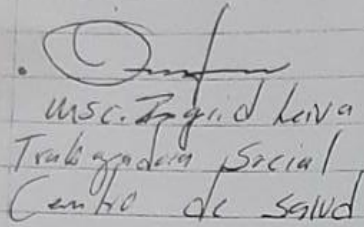 Msc. Ingrid Leiva
Trabajadora Social
Centro de Salud